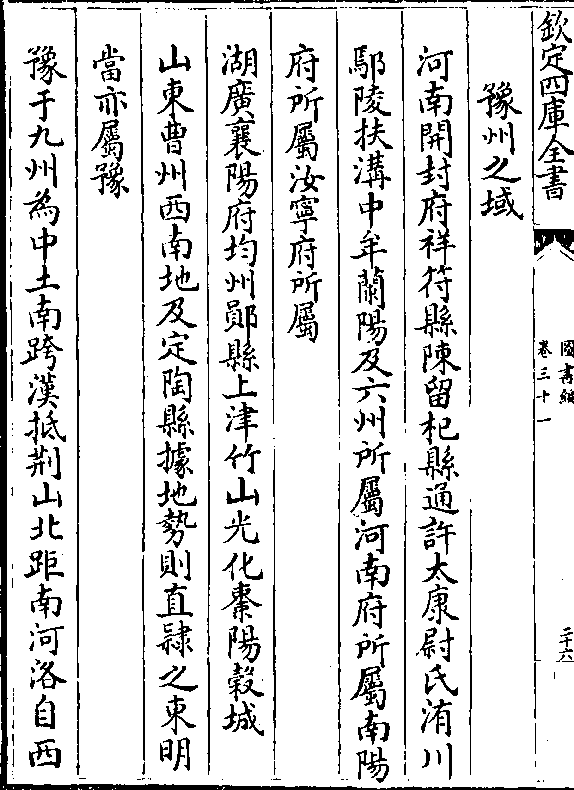 欽定四庫全書
圖書編
卷三十一
二十六
豫州之域
河南開封府祥符縣陳留杞縣通許太康尉氏洧川
鄢陵扶溝中牟蘭陽及六州所屬河南府所屬南陽
府所屬汝寧府所屬
湖廣襄陽府均州鄖縣上津竹山光化棗陽穀城
山東曹州西南地及定陶縣據地勢則直隷之東明
當亦屬豫
豫于九州為中土南跨漢抵荆山北距南河洛自西